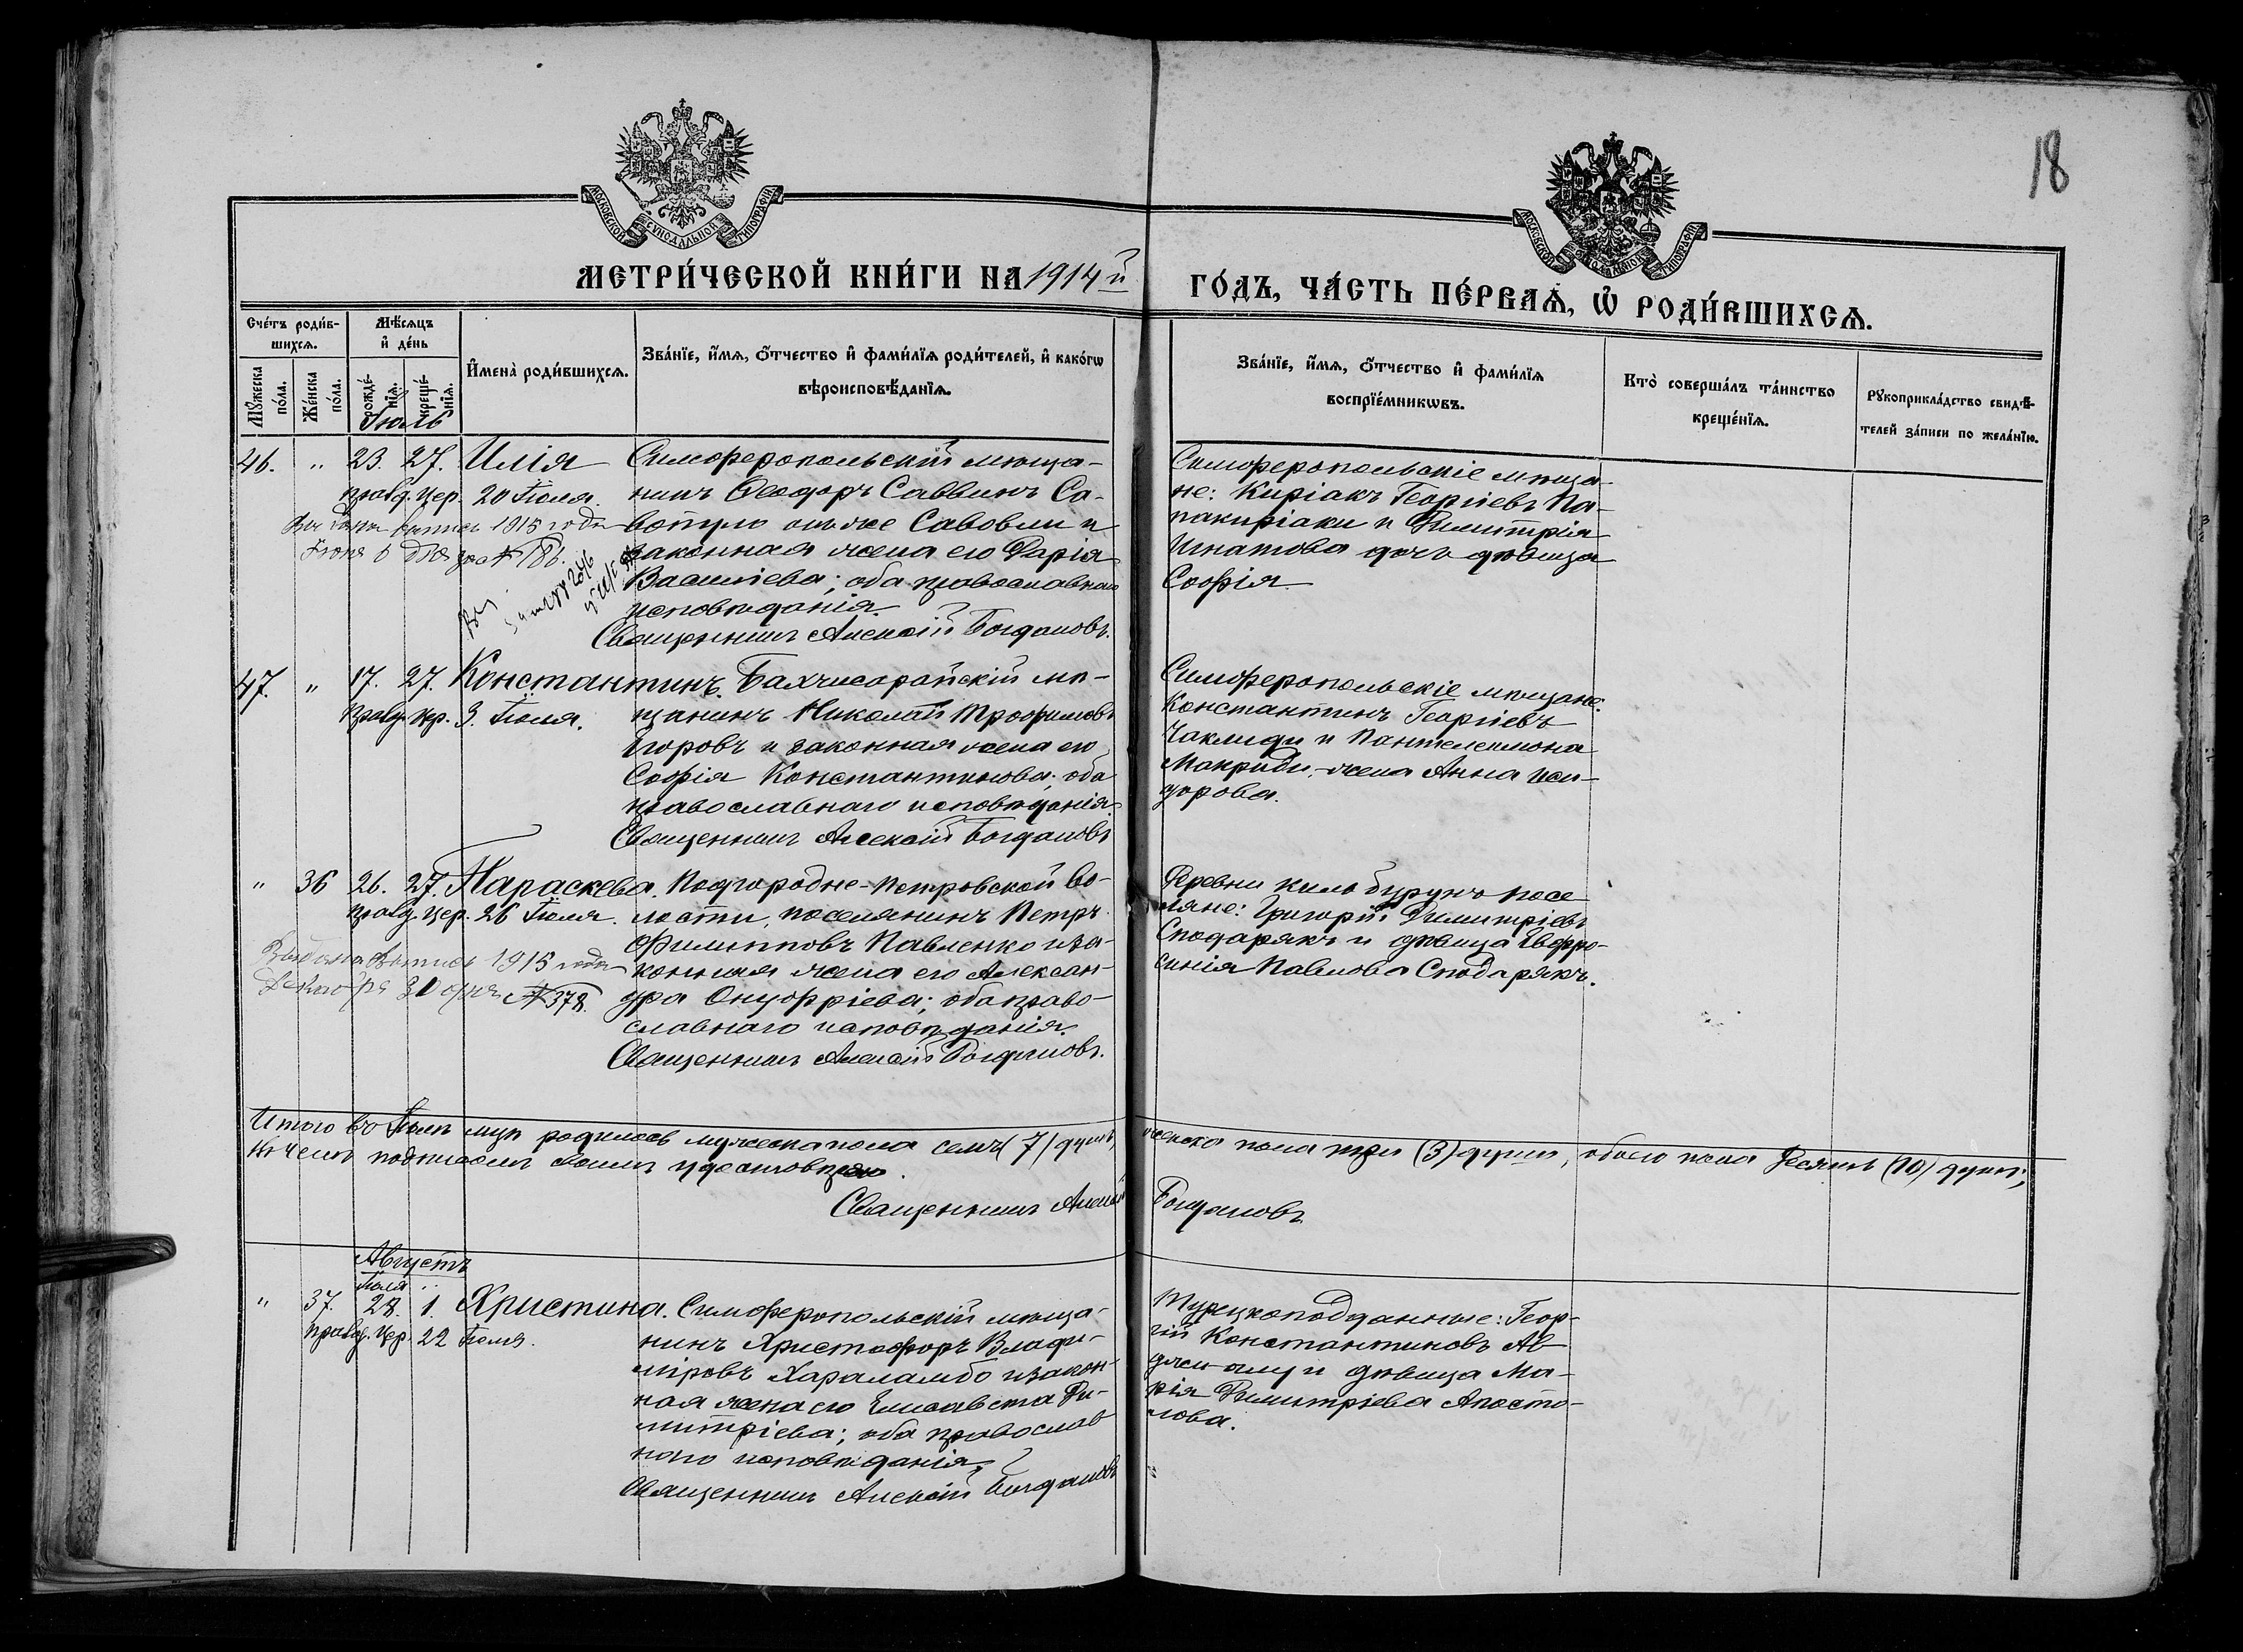 18
МОСКОВСКОЙ СУНОДАЛЬНОЙ ТИПОГРАФІИ
МОСКОВСКОЙ СУНОДАЛЬНОЙ ТИПОГРАФІИ
МЕТРИ́ЧЕСКОЙ КНИ́ГИ НА 1914й
ГО́ДЪ, ЧА́СТЬ ПЕ́РВАѦ, Ѡ҆ РОДИ́ВШИХСѦ.
Сче́тъ роди́в-
шихсѧ.
Мѣ́сѧцъ
и҆ де́нь
Мꙋ́жеска
по́ла.
Же́нска
по́ла.
рожде́-
нїѧ.
креще́-
нїѧ.
И҆мена̀ роди́вшихсѧ.
Зва́нїе, и҆́мѧ, ѻ҆́тчество и҆ фами́лїѧ роди́телей, и҆ како́гѡ
вѣроисповѣ́данїѧ.
Зва́нїе, и҆́мѧ, ѻ҆́тчество и҆ фами́лїѧ
воспрїе́мникѡвъ.
Кто̀ соверша́лъ та́инство
креще́нїѧ.
Рꙋкоприкла́дство свидѣ́-
телей за́писи по жела́нїю.
Іюль
46. " 23. 27. Илія
празд. цер. 20 Іюля.
выпись 1915 года
Іюня 6 дня за № 186.
Симферопольскій мѣща-
нинъ Ѳеодоръ Саввинъ Са-
вопуло онъ же Савовли и
законная жена его Дарія
Василіева; оба православнаго
исповѣданія.
Священникъ Алексій Богдановъ.
Симферопольскіе мѣща-
не: Киріакъ Георгіевъ Па-
пакиріаки и Димитрія
Игнатова дочь дѣвица
Софія
47. " 17. 27. Константинъ.
празд. цер. 3. Іюля.
Бахчисарайскій мѣ-
щанинъ Николай Трофимовъ
Егоровъ и законная жена его
Софія Константинова; оба
православнаго исповѣданія.
Священникъ Алексій Богдановъ
Симферопольскіе мѣщане:
Константинъ Георгіевъ
Чаклиди и Пантелеимона
Макриди, жена Анна Иси-
дорова.
" 36 26. 27. Параскева.
празд. цер. 26 Іюля.
Выдана выпись 1915 года
Декабря 30 дня № 378.
Подгородне-Петровской во-
лости, поселянинъ Петръ
Филипповъ Павленко и за-
конная жена его Алексан-
дра Онуфріева; оба право-
славнаго исповѣданія.
Священникъ Алексій Богдановъ.
Деревни Кильбурунъ посе-
ляне: Григорій Димитріевъ
Сподарякъ и дѣвица Евфро-
синія Павлова Сподарякъ.
Итого въ Іюлѣ мцѣ родилось мужеска пола семь (7) душъ, женска пола три (3) души, обоего пола десять (10) душъ;
въ чемъ подписомъ своимъ удостовѣряю.
Священникъ Алексій Богдановъ
Августъ
Іюля
" 37. 28. 1. Христина.
празд. цер. 22 Іюля.
Симферопольскій мѣща-
нинъ Христофоръ Влади-
міровъ Хараламбо и закон-
ная жена его Елисавета Ди-
митріева; оба православ
наго исповѣданія.
Священникъ Алексій Богдановъ
Турецкоподданные: Геор-
гій Константиновъ Ав-
и дѣвица Ма-
рія Димитріева Апосто-
лова.